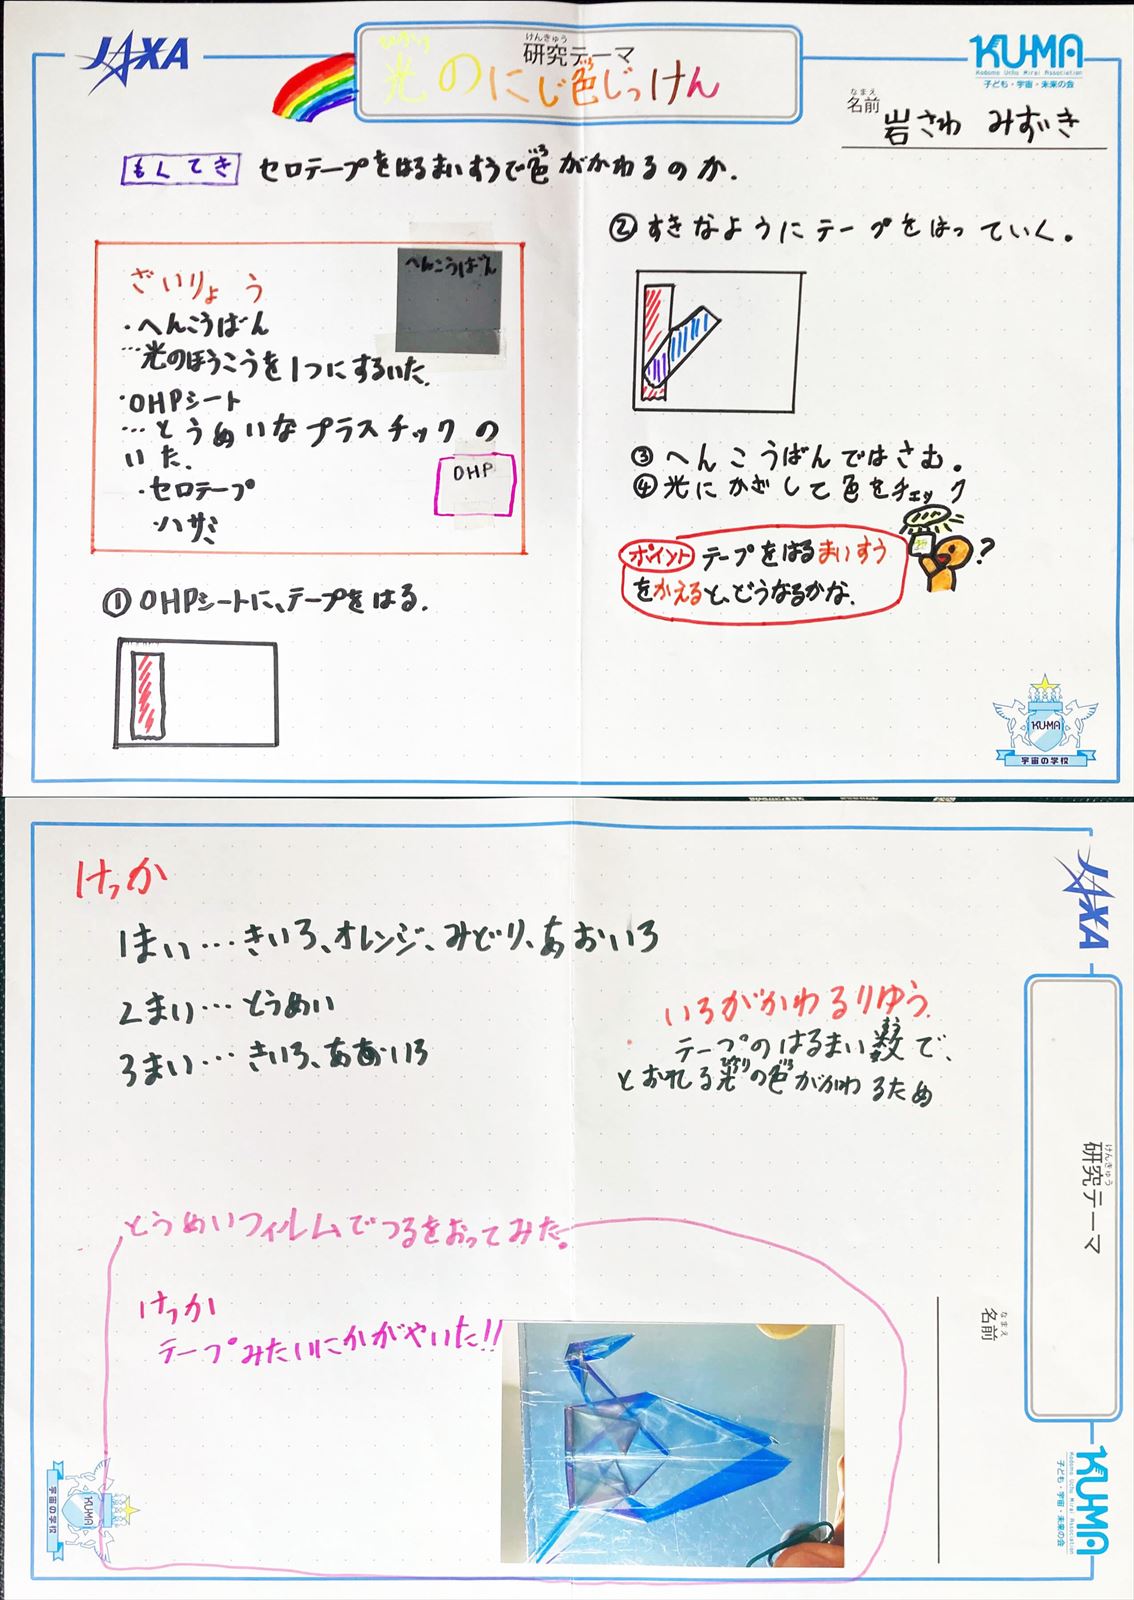 JAXA
けんきゅう
研究テーマ
ひかり
光のにじ色じっけん
いろ
KU-MA
Kodomo Uchu Mirai Association
子ども・宇宙・未来の会
なまえ
名前
岩さわ みずき
もくてき
セロテープをはるまいすうで色がかわるのか.
いろ
ざいりょう
へんこうばん
・へんこうばん
…光のほうこうを1つにするいた.
・OHPシート
…とうめいなプラスチックの
いた.
OHP
・セロテープ
・ハサミ
①OHPシートに、テープをはる.
②すきなようにテープをはっていく。
③へんこうばんではさむ。
④光にかざして色をチェック
ポイント
テープをはるまいすう
をかえると、どうなるかな.
?
KU-MA
宇宙の学校
けっか
1まい…きいろ、オレンジ、みどり、あおいろ
2まい…とうめい
3まい…きいろ、ああいろ
いろがかわるりゆう.
テープのはるまい数で、
すう
とおれる光の色がかわるため
ひかり
いろ
とうめいフィルムでつるをおってみた。
けっか
テープみたいにかがやいた!!
JAXA
けんきゅう
研究テーマ
なまえ
名前
KU-MA
Kodomo Uchu Mirai Association
子ども・宇宙・未来の会
KU-MA
宇宙の学校